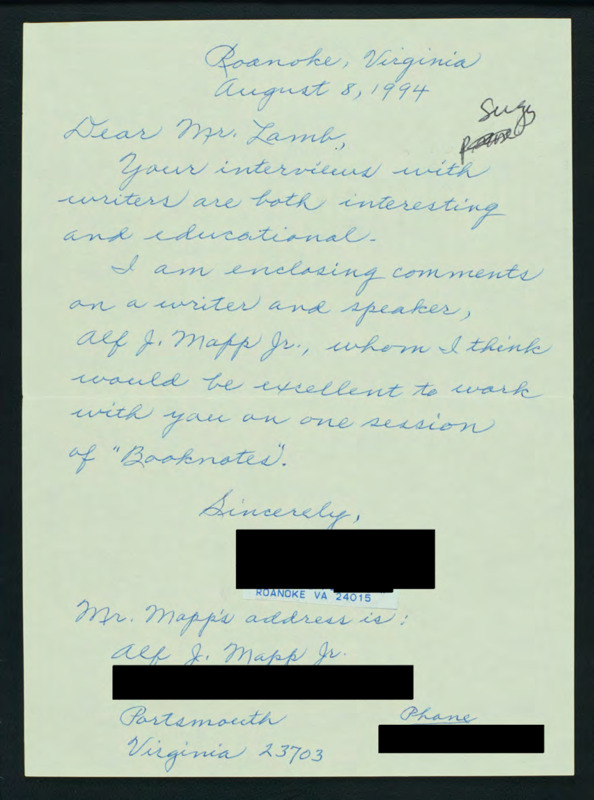 Roanoke, Virginia
August 8, 1994
Suzy
Dear Mr. Lamb,
Your interviews with
writers are both interesting
and educational.
I am enclosing comments
on a writer and speaker,
Alf J. Mapp Jr., whom I think
would be excellent to work
with you on one session
of "Booknotes".
Sincerely,
ROANOKE VA 24015
Mr. Mapp's address is:
Alf J. Mapp Jr.
Portsmouth
Phone
Virginia 23703